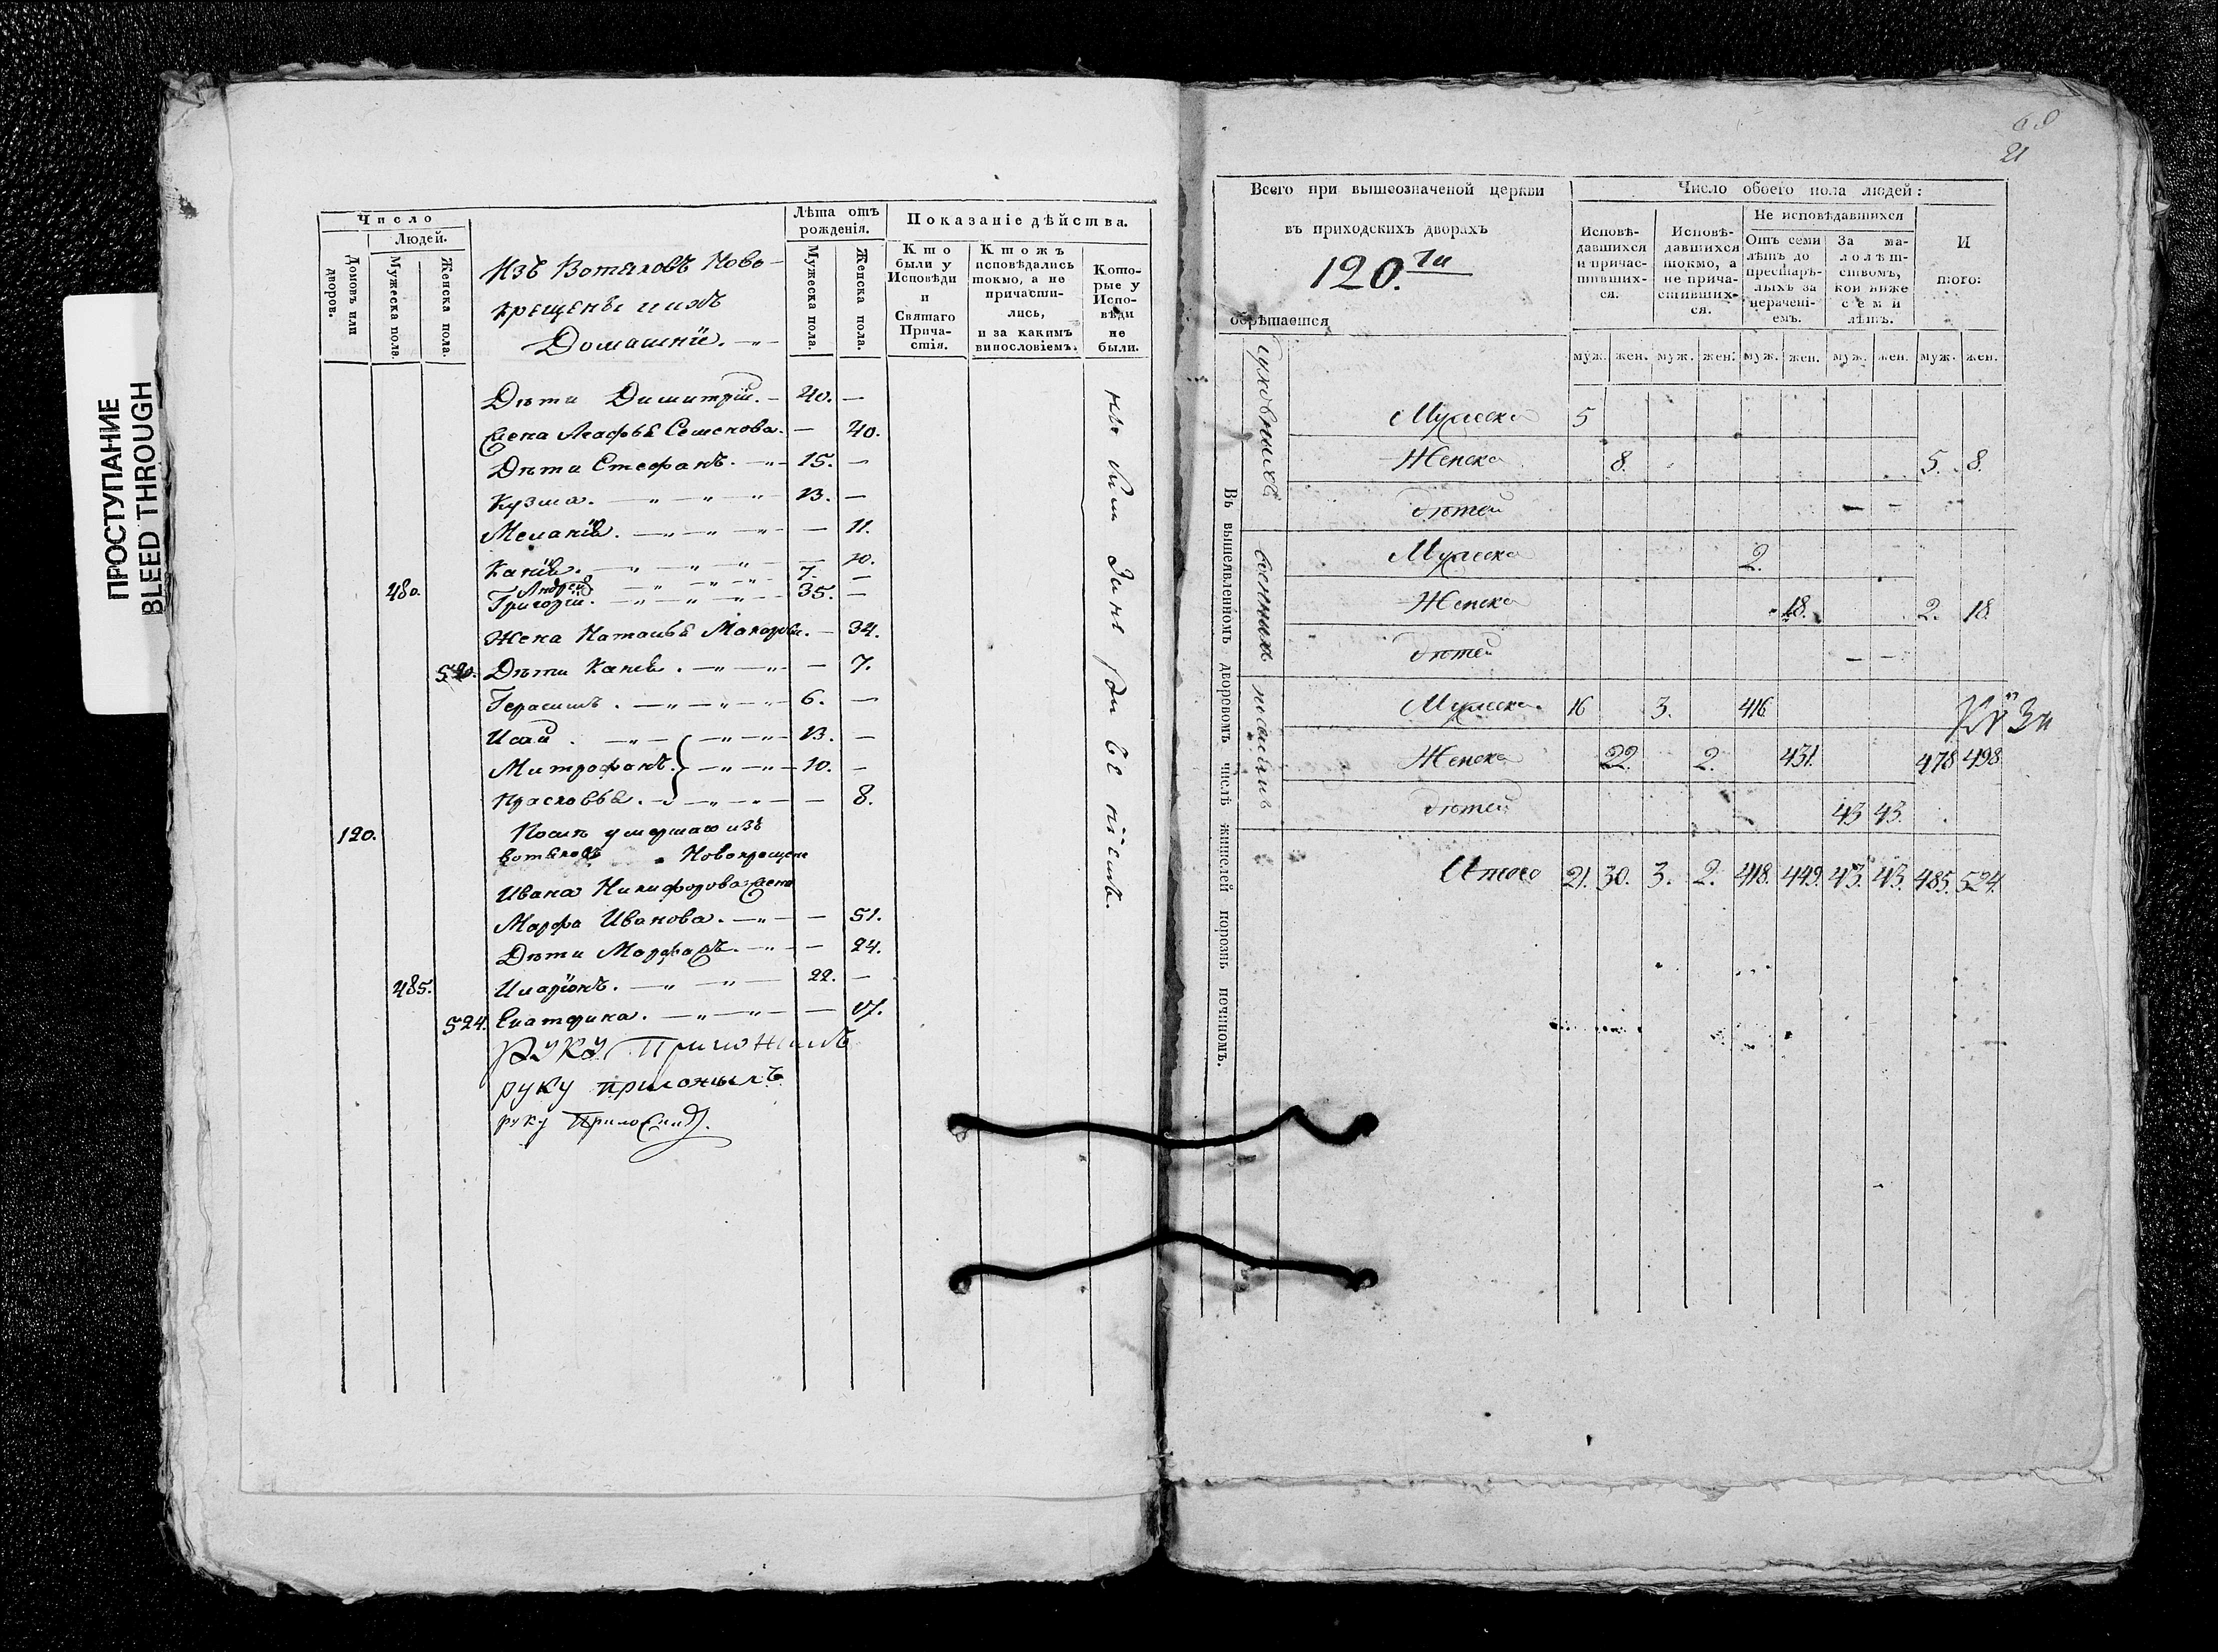 ПРОСТУПАНИЕ
BLEED THROUGH
Число
Людей.
Домовъ или дворовъ.
Мужеска пола.
Женска пола.
Изъ Вотяковъ Ново-
крещены и ихъ
Домашнїи.
Лѣта отъ рожденія.
Мужеска пола.
Женска пола.
Показаніе дѣйства.
Кто были у Исповѣди и Святаго Причастія.
Ктожъ исповѣдались токмо, а не причастились, и за какимъ винословіемъ.
Которые у Исповѣди не были.
Дѣти Димитрїй. 40. —
Жена Агафья Семенова. — 40.
Дѣти Стефанъ. 15. —
Кузма. 13. —
Меланїя. — 11.
— 10.
Андрей 7. —
480. Григорїй. 35. —
Жена Наталья Макарова. — 34.
520. Дѣти — 7.
Герасимъ. 6. —
13. —
Митрофанъ. 10. —
Прасковья. — 8.
120. Послѣ умершаго изъ
вотяковъ Новокрещена
Ивана Никифорова жена
Марфа Иванова. — 51.
Дѣти — 24.
485. Иларїонъ. 22. —
524. Екатерина. — 17.
руку приложилъ
руку приложилъ
руку приложилъ.
21
Всего при вышеозначеной церкви
въ приходскихъ дворахъ
120.ти
обрѣтается
Число обоего пола людей:
Исповѣдавшихся и причастившихся.
Исповѣдавшихся токмо, а не причастившихся.
Не исповѣдавшихся
Отъ семи лѣтъ до престарѣлыхъ за нерачені-емъ.
За малолѣтствомъ, кои ниже семи лѣтъ.
Итого:
муж. жен. муж. жен. муж. жен. муж. жен. муж. жен.
Въ вышеявленномъ дворовомъ числѣ жителей порознь починомъ.
духовныхъ
Мужеска 5
Женска 8. 5. 8.
дѣтей — —
военныхъ
Мужеска 2.
Женска 18. 2. 18.
дѣтей — —
Мужеска. 16 3. 416
Женска 22. 2. 431. 478 498
дѣтей 43 43.
Итого 21. 30. 3. 2. 418. 449. 43. 43. 485. 524.